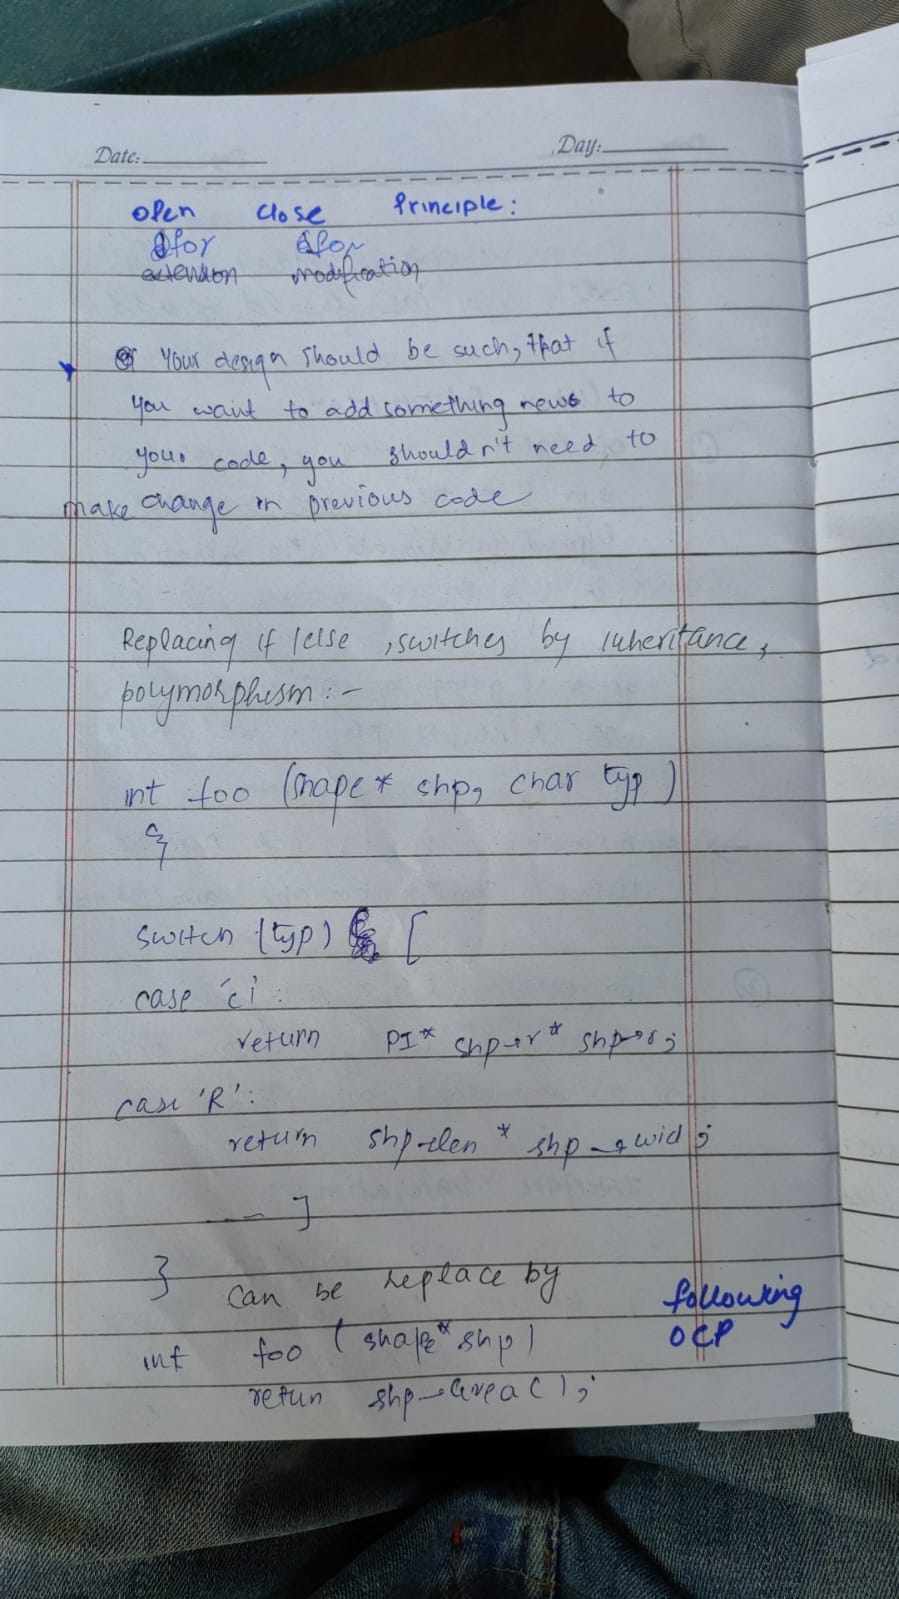 Date:
Day:
Open Close Principle:
for for
extension modification
Your design should be such, that if
you want to add something new to
your code, you shouldn't need to
make change in previous code
Replacing if/else, switches by inheritance,
polymorphism:-
int foo (shape* shp, char typ)
{
switch (typ) [
case 'c':
return PI* shp→r* shp→r;
case 'R':
return shp→len * shp→wid;
-- ]
} Can be replace by
following
OCP
int foo (shape* shp)
retun shp→area();